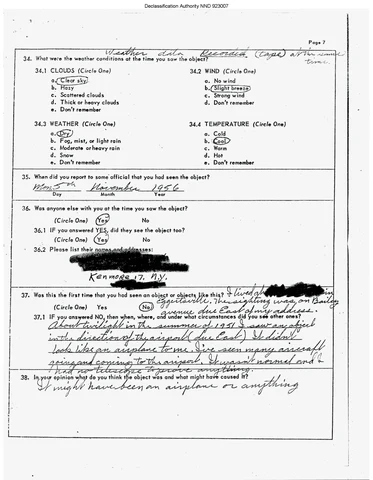 Declassification Authority NND 923007
Page 7
Weather data Recorded (tape) at the same time.
34. What were the weather conditions at the time you saw the object?
34.1 CLOUDS (Circle One) 34.2 WIND (Circle One)
a. Clear sky a. No wind
b. Hazy b. Slight breeze
c. Scattered clouds c. Strong wind
d. Thick or heavy clouds d. Don't remember
e. Don't remember
34.3 WEATHER (Circle One) 34.4 TEMPERATURE (Circle One)
a. Dry a. Cold
b. Fog, mist, or light rain b. Cool
c. Moderate or heavy rain c. Warm
d. Snow d. Hot
e. Don't remember e. Don't remember
35. When did you report to some official that you had seen the object?
Mon 5th November 1956
Day Month Year
36. Was anyone else with you at the time you saw the object?
(Circle One) Yes No
36.1 IF you answered YES, did they see the object too?
(Circle One) Yes No
36.2 Please list their names and addresses:
Kenmore 17, N.Y.
37. Was this the first time that you had seen an object or objects like this? I lived at in
(Circle One) Yes No Eggertsville. The sighting was on Bailey
avenue due East of my address.
37.1 IF you answered NO, then when, where, and under what circumstances did you see other ones?
About twilight in the summer of 1951 I saw an object
in the direction of the airport (due East). It didn't
look like an airplane to me. I've seen many aircraft
going and coming to the airport. It wasn't normal and I
had no telescope to prove anything.
38. In your opinion what do you think the object was and what might have caused it?
It might have been an airplane or anything